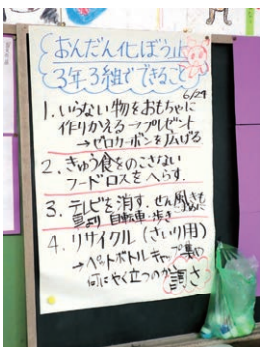 おんだん化ぼう止
3年3組でできること
6/29
1.いらない物をおもちゃに
作りかえる→プレゼント
→ゼロカーボンを広げる
2.きゅう食をのこさない
フードロスをへらす.
3.テレビを消す.せん風き
車より自転車・歩き
4.リサイクル(さいり用)
→ペットボトルキャップ集め
何にやく立つのか調さ